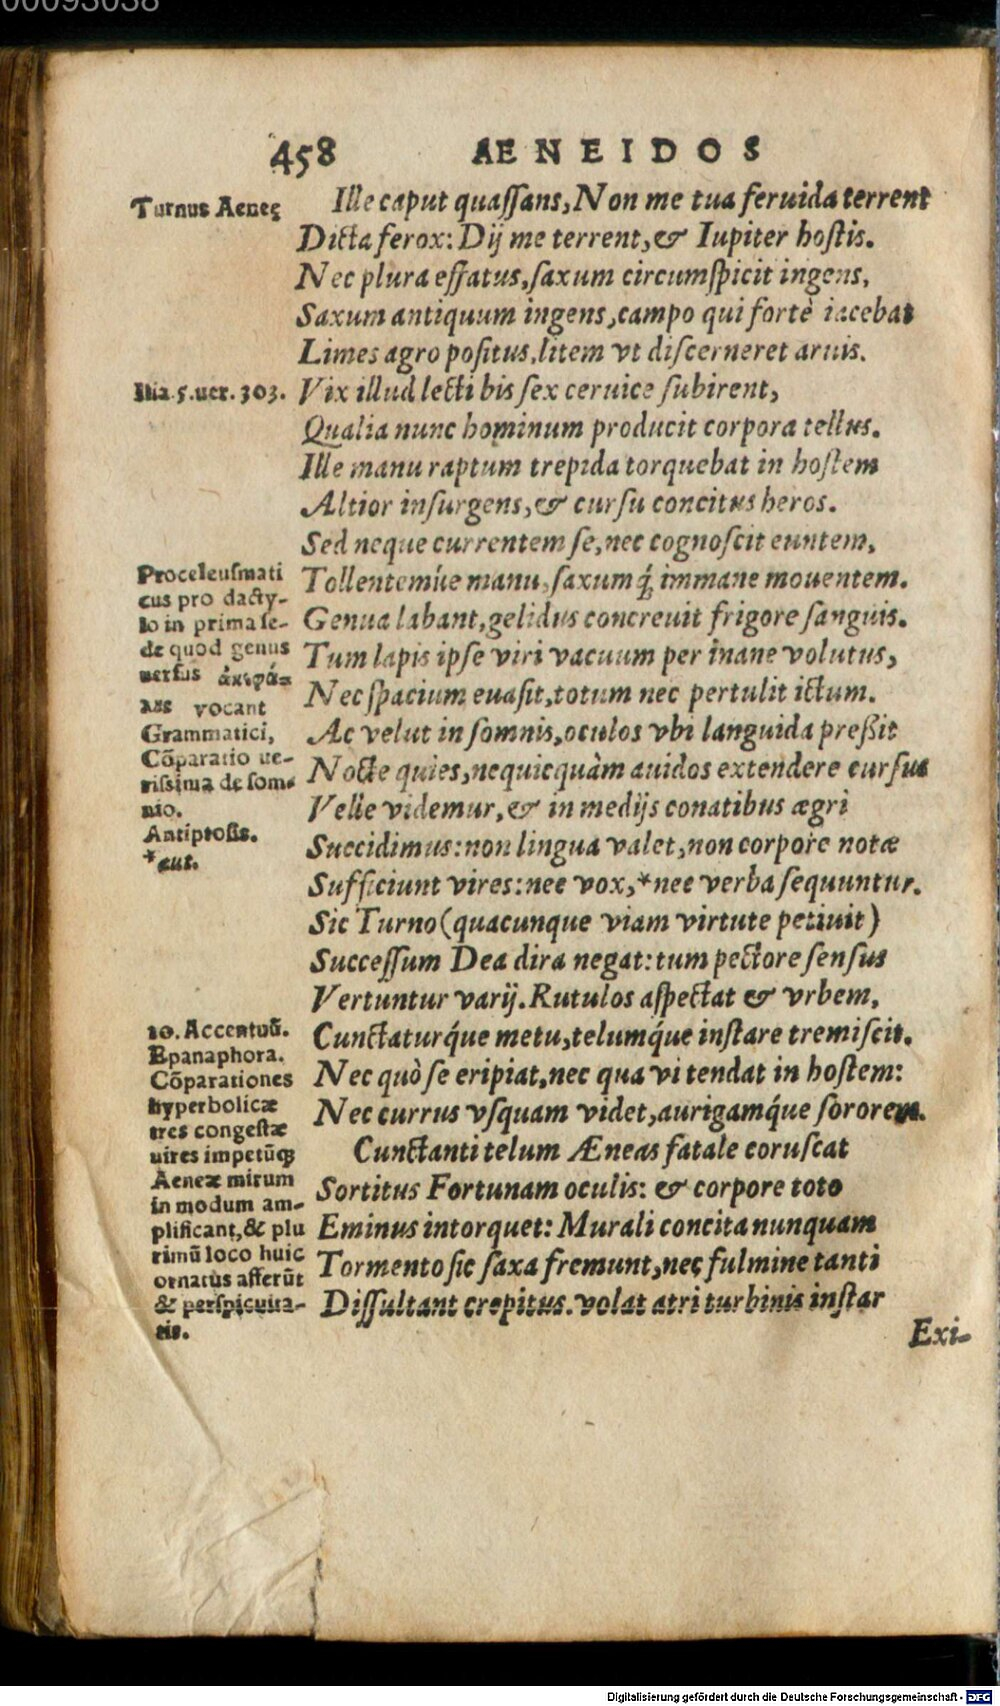 00093038
458 AENEIDOS
Turnus Aeneę
Ille caput quaſſans, Non me tua feruida terrent
Dicta ferox: Dij me terrent, & Iupiter hoſtis.
Nec plura effatus, ſaxum circumſpicit ingens,
Saxum antiquum ingens, campo qui fortè iacebat
Limes agro poſitus, litem vt diſcerneret aruis.
Ilia.5.uer.303.
Vix illud lecti bis ſex ceruice ſubirent,
Qualia nunc hominum producit corpora tellus.
Ille manu raptum trepida torquebat in hoſtem
Altior inſurgens, & curſu concitus heros.
Sed neque currentem ſe, nec cognoſcit euntem,
Proceleuſmati
cus pro dacty-
lo in prima ſe-
de quod genus
uerſus
vocant
Grammatici,
Cōparatio ue-
riſsima de ſom-
nio.
Antiptoſis.
*aut.
Tollentemúe manu, ſaxumq́; immane mouentem.
Genua labant, gelidus concreuit frigore ſanguis.
Tum lapis ipſe viri vacuum per inane volutus,
Nec ſpacium euaſit, totum nec pertulit ictum.
Ac velut in ſomnis, oculos vbi languida preßit
Nocte quies, nequicquàm auidos extendere curſus
Velle videmur, & in medijs conatibus ægri
Succidimus: non lingua valet, non corpore notæ
Sufficiunt vires: nec vox, *nec verba ſequuntur.
Sic Turno (quacunque viam virtute petiuit)
Succeſſum Dea dira negat: tum pectore ſenſus
Vertuntur varij. Rutulos aſpectat & vrbem,
10. Accentuū.
Epanaphora.
Cōparationes
hyperbolicæ
tres congeſtæ
uires impetūq;
Aeneæ mirum
in modum am-
plificant, & plu
rimū loco huic
ornatùs afferūt
& perſpicuita-
tis.
Cunctaturq́ue metu, telumq́ue inſtare tremiſcit.
Nec quò ſe eripiat, nec qua vi tendat in hoſtem:
Nec currus vſquam videt, aurigamq́ue ſororem.
Cunctanti telum Æneas fatale coruſcat
Sortitus Fortunam oculis: & corpore toto
Eminus intorquet: Murali concita nunquam
Tormento ſic ſaxa fremunt, nec fulmine tanti
Diſſultant crepitus. volat atri turbinis inſtar
Exi-
Digitalisierung gefördert durch die Deutsche Forschungsgemeinschaft - DFG